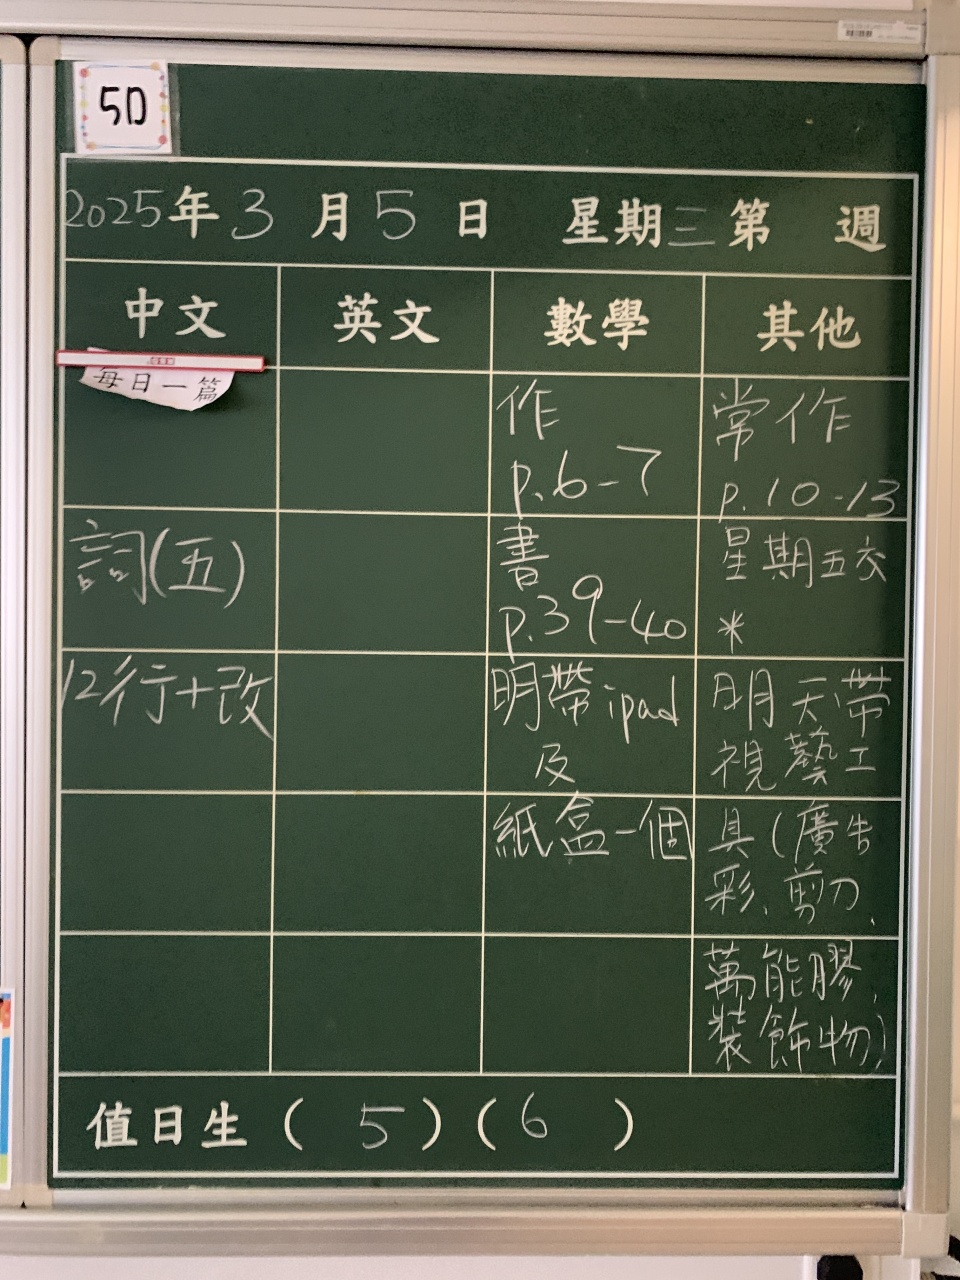 5D
2025年3月5日 星期三第 週
中文 英文 數學 其他
每日一篇
詞(五)
12行+改
作
p.6-7
書
p.39-40
明帶ipad
及
紙盒一個
常作
p.10-13
星期五交
*
明天帶
視藝工
具(廣告
彩、剪刀、
萬能膠、
裝飾物)
值日生(5)(6)